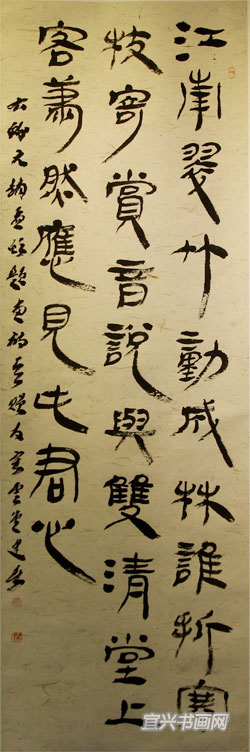 江南翠竹動成林誰折寒
枝寄賞音說與雙清堂上
客蕭然應見此君心
右錄元趙孟頫題
宜兴书画网